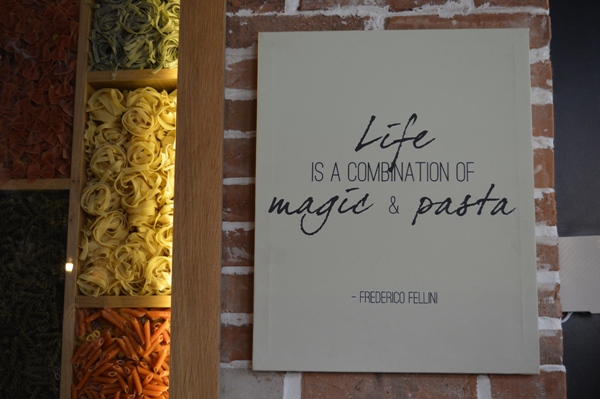 Life
IS A COMBINATION OF
magic & pasta
- FREDERICO FELLINI